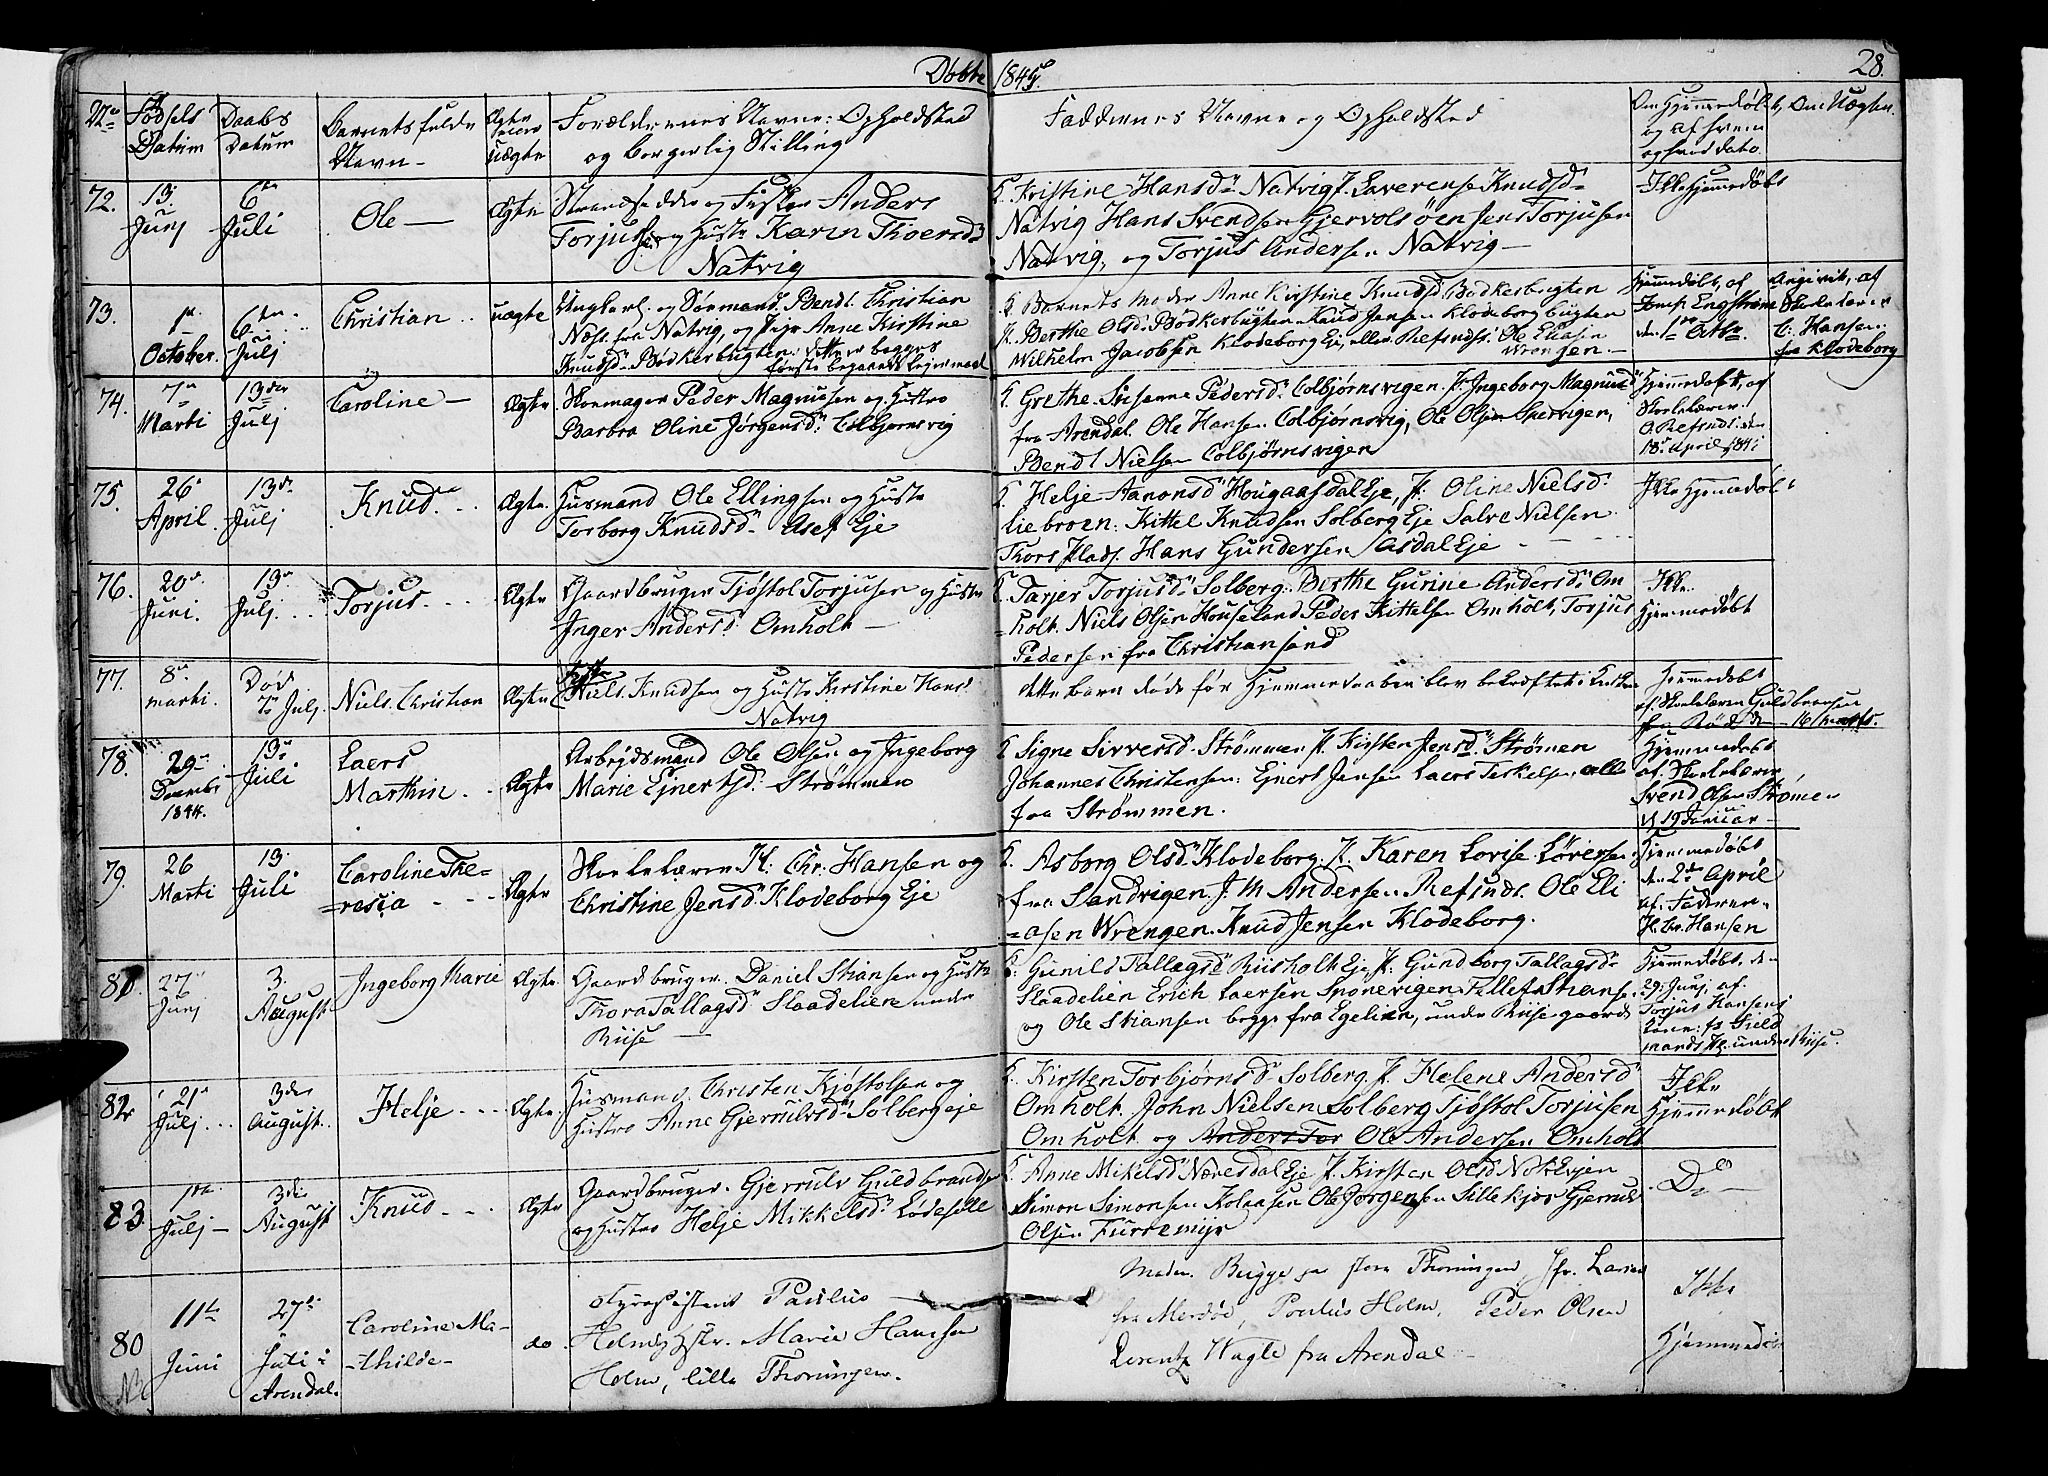 Døbte 1845. 28.
No Fødsels Datum Daabs Datum Barnets fulde Navn Ægte eller uægte Forældrenes Navne: Opholdsted og borgerlig Stilling Faddernes Navne og Opholdsted Om hjemmedøbt, og af hvem og hvad dato Om Uægten
72. 13. Junj 6te Juli Ole Ægte Strandsidder og Fisker Anders
Torjusen og Hustr Karin Thoersd
Natvig
K. Kristine Hansd. Natvig, P. Saverense Knudsd
Natvig Hans Svendsen Gjervolsøen Jens Torjusen
Natvig, og Torjus Andersen Natvig
Ikke hjemmedøbt
73. 1ste October 6te Julj Christian uægte Ungkarl og Sømand Bendt Christian
Næs. fra Natvig, og Pige Anne Kirstine
Knudsd. Bødkerbugten, dette er begges
første begaaede Leiermaal
K. Barnets moder Anne Kirstine Knudsd Bødkerbugten
P. Berthe Olsd. Bødkerbugten Knud Jensen Klodeborg bugten
Wilhelm Jacobsen Klodeborg Eje, Refsnds. Ole Eliasen
Wrengen.
Hjemmedøbt, af
Jomf. Engstrøm
den 1ste
Angivet, af
Skolelærer
C. Hansen
fra Klodeborg
74. 7de Marti 13de Julj Caroline Ægte Skomager Peder Magnusen og Hustro
Barbra Oline Jørgensd. Colbjørnsvig
K. Grethe Susanne Pedersd. Colbjørnsvigen. P. Ingeborg Magnusd
fra Arendal Ole Hansen Colbjørnsvig, Ole Olsen Spervigen,
Bendt Nielsen Colbjørnsvigen
Hjemmedøbt, af
Skolelærer
O Refsnds: den
18de April 184
75. 26 April 13de Julj Knud Ægte Husmand Ole Ellingsen og Hustr
Torborg Knudsd. Eje
K. Helje Aanonsd Hougaasdal Eje, P. Oline Nielsd.
Liebroen. Kittel Knudsen Solberg Eje Salve Nielsen
Thors plads. Hans Gundersen Asdal Eje
Ikke Hjemmedøbt
76. 20de Juni 13de Julj Torjus Ægte Gaardbruger Tjøstol Torjusen og Hustr
Inger Andersd. Omholt
K. Tarjer Torjusd. Solberg. Berthe Gurine Andersd. Om
holt. Niels Olsen Houseland Peder Kittelsen Omholt, Torjus
Pedersen fra Christiansand
Ikke
Hjemmedøbt
77. 8de marti Død 7de Julj Niels Christian Ægte Niels Knudsen og Hustr Kirstine Hansd
Natvig
dette barn døde før Hjemmedaaben blev bekræftet i Kirken
Hjemmedøbt
af Skolelærer Guldbransen
fra Rød den 16 marts.
78. 29de Decembr 1844. 13de Juli Laers
Marthin Ægte Arbejdsmand Ole Olsen og Ingeborg
Marie Ejnertsd. Strømmen
K Signe Sivversd. Strømmen P. Kirsten Jensd. Strømen
Johannes Christensen: Ejnert Jensen Laers Terkelsen alle
fra Strømmen.
Hjemmedøbt
af Skolelærer
Svend Olsen Strømen
d 19 Januar
79. 26 Marti 13. Juli Caroline The-
resia Ægte Skolelærer H. Chr. Hansen og
Christine Jensd. Klodeborg Eje
K. Asborg Olsd. Klodeborg. P. Karen Lovise Lørense
fra Sandvigen. J. M Andersen Refsnds. Ole Eli
asen Wrengen. Knud Jensen Klodeborg.
Hjemmedøbt
den 2de April
af Faderen
H. Chr. Hansen
81. 27 Junj 3. August Ingeborg Marie Ægte Gaardbruger. Daniel Stiansen og Hustr
Thora Tallagsd Slaadelien under
Riise
K: Gunild Tallagsd Riisholt Eje, P: Gundborg Tallagsd
Slaadelien Erich Laersen Sponevigen Tellef Stians.
og Ole Stiansen begge fra Egelien, under Riise gaard
Hjemmedøbt den
29. Junj af
Torjus Hansens
Kone: fs Sield
mands Hg. under Riise.
82 21 Julj 3de August Helje Ægte Husmand. Christen Kjøstolsen og
Hustro Anne Gjerrulvsd Solberg eje
K. Kirsten Torbjørnsd Solberg. P. Helene Andersd
Omholt. John Nielsen Solberg Tjøstol Torjusen
Omholt og Anders Tor Ole Andersen Omholt
Ikke
Hjemmedøbt
83 1ste Julj 3die August Knud Ægte Gaardbruger. Gjerrulv Guldbrands
og Hustro Helje Mikkelsd. Lødesølle
K. Anne Mikelsd Næresdal Eje P. Kirsten Olsd. Nøkleyen
Simon Simonsen Kolaasen Ole Jørgensen Sillekjær Gjerrulv
Olsen Furremijr
Do
80 No 11te Juni 27de Juli i Arendal. Caroline Ma-
thilde do. Fyrassistent Paulus
Holm og Hstr. Marie Hansen
Holm, lille Thorungen.
Madm. Bugge paa store Thorungen, Jfr. Larsen
fra Merdøe, Poulus Holm, Peder Olsen
Lorentz Wagle fra Arendal
Ikke
Hjemmedøbt